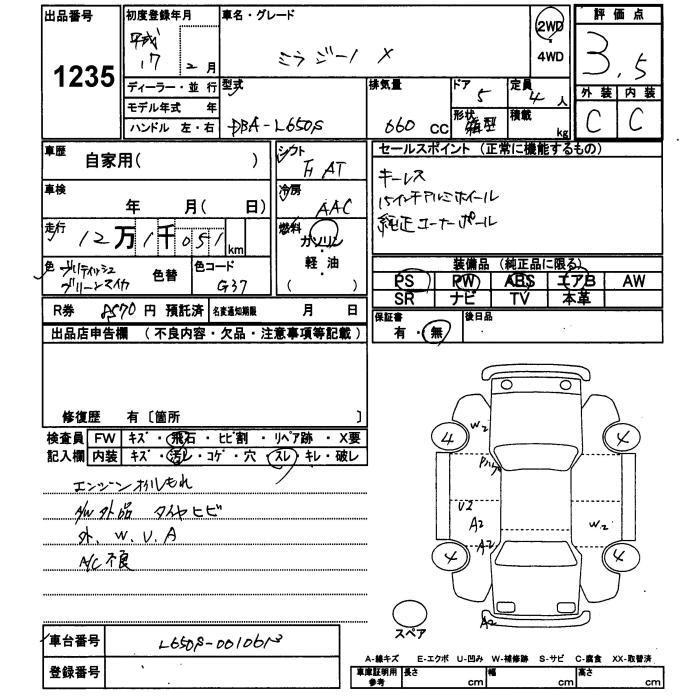 出品番号
1235
初度登録年月
平成
17 2月
車名・グレード
ミラジーノ X
2WD
4WD
評価点
3.5
外装 内装
C C
ディーラー・並行
モデル年式 年
ハンドル 左・右
型式
DBA-L650S
排気量
660 CC
ドア
5
形状
定員
4 人
積載
kg
車歴
自家用( )
シフト
AT
車検
年 月( 日)
冷房
AAC
走行
12万1千051km
燃料
ガソリン
軽・油
( )
色 ブリティッシュ
グリーンマイカ
色替
色コード
G37
R券 8570円 預託済
名変通知期限 月 日
セールスポイント (正常に機能するもの)
キーレス
15インチアルミホイール
純正コーナーポール
装備品 (純正品に限る)
PS PW ABS エアB AW
SR ナビ TV 本革
保証書
有・無
後日品
出品店申告欄 (不良内容・欠品・注意事項等記載)
修復歴 有〔箇所 〕
検査員
記入欄
FW キズ・飛石・ヒビ割・リペア跡・X要
内装 キズ・汚レ・コゲ・穴 スレ・キレ・破レ
エンジンオイルもれ
A/W外品 タイヤヒビ
外.W.U.A
A/C不良
W2
4
4
U2
A2
W2
A2
4
4
A2
スペア
車台番号
登録番号
A-線キズ E-エクボ U-凹み W-補修跡 S-サビ C-腐食 XX-取替済
車庫証明用
参考
長さ cm
幅 cm
高さ cm